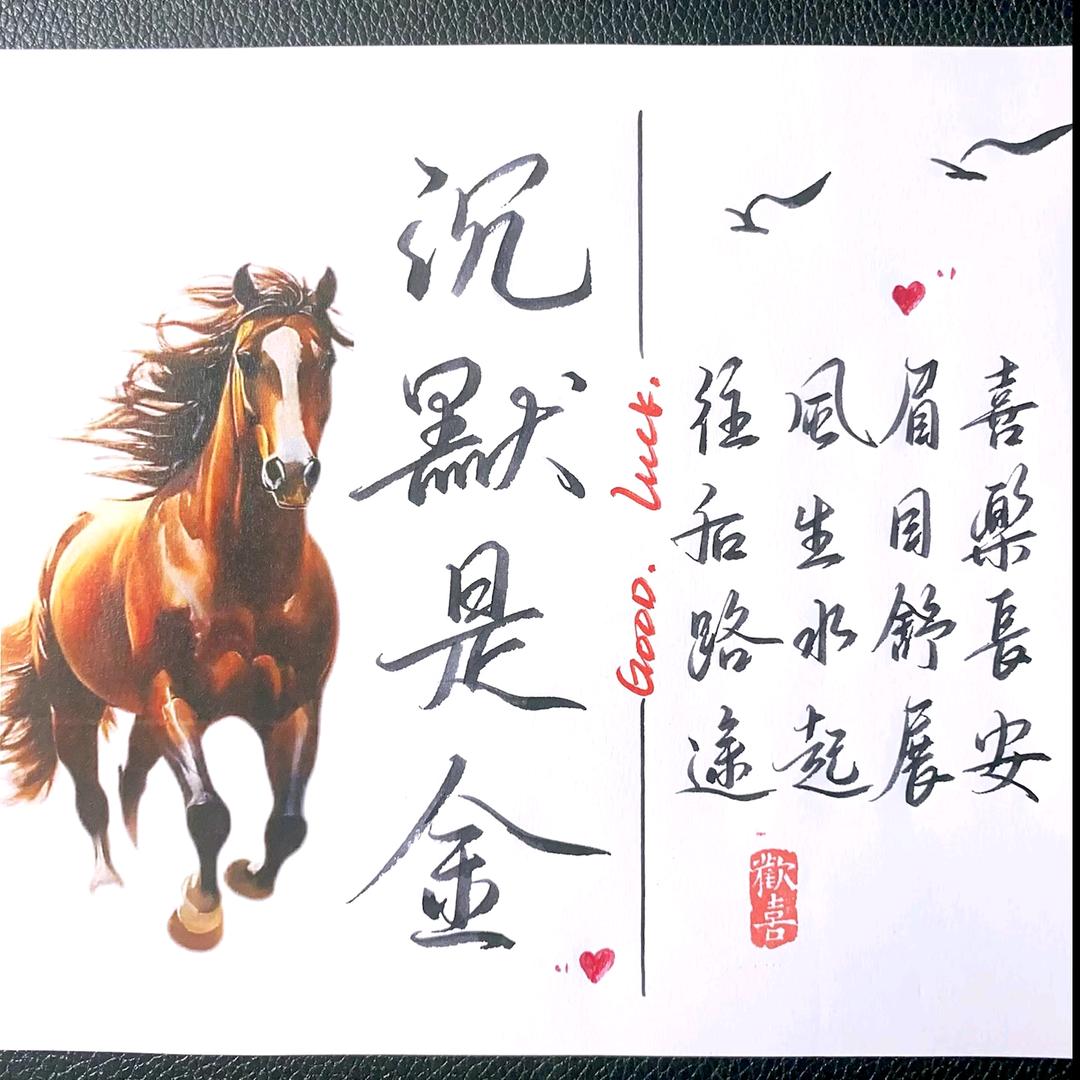 喜樂長安
眉目舒展
風生水起
往后路途
歡喜
GOOD. Luck.
沉默是金